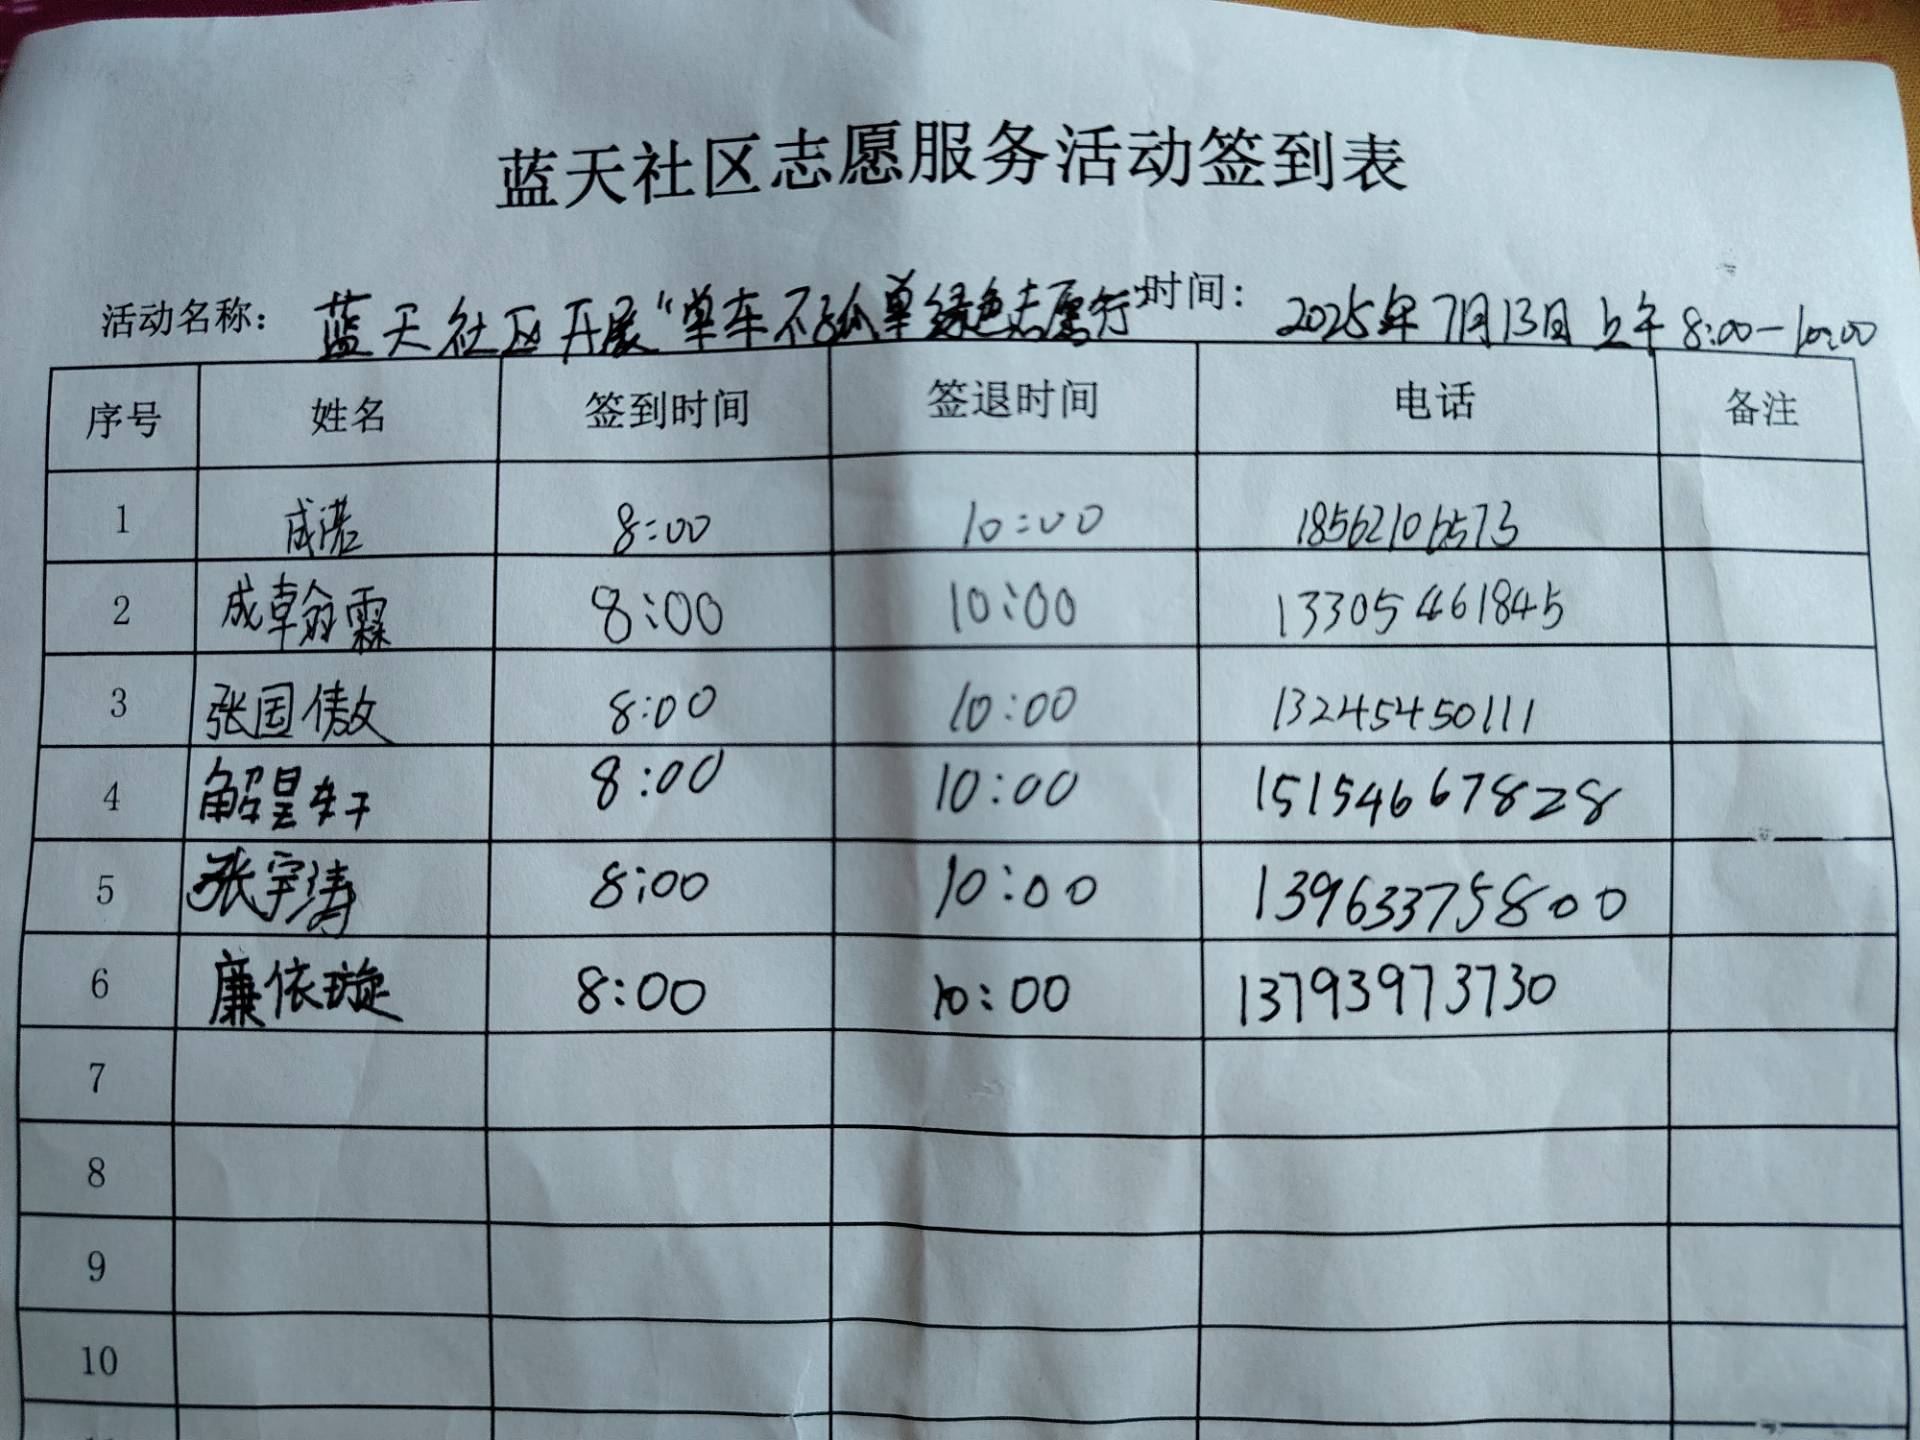 蓝天社区志愿服务活动签到表
活动名称: 蓝天社区开展“单车不孤单绿色志愿行” 时间: 2025年7月13日上午8:00-10:00
序号 姓名 签到时间 签退时间 电话 备注
1 成诺 8:00 10:00 18562106573
2 成翰霖 8:00 10:00 13305461845
3 张国傲 8:00 10:00 13245450111
4 解呈轩 8:00 10:00 15154667828
5 张宇涛 8:00 10:00 13963375800
6 廉依璇 8:00 10:00 13793973730
7
8
9
10